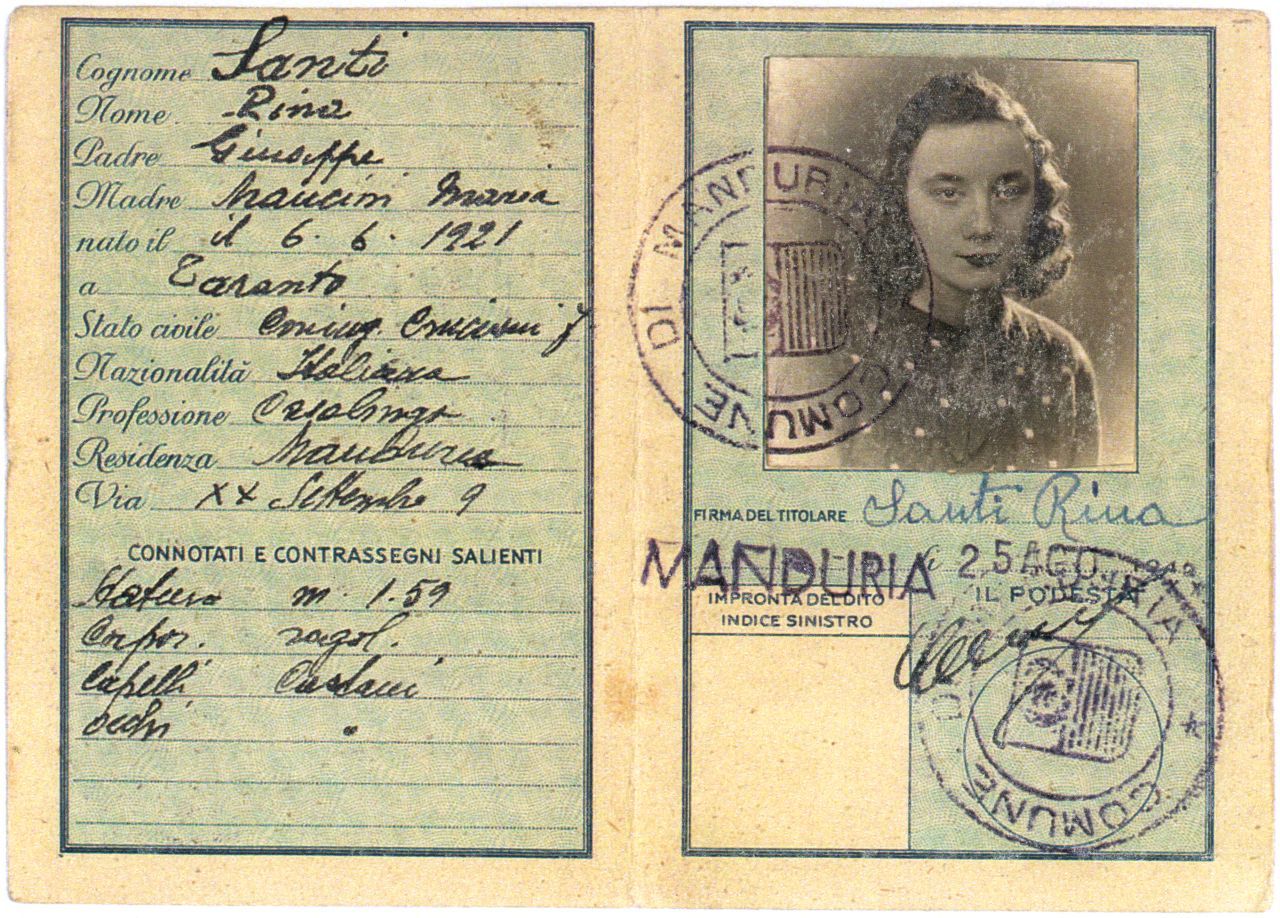 Cognome Santi
Nome Rina
Padre Giuseppe
Madre Mancini Maria
nato il il 6. 6. 1921
a Taranto
Stato civile Coniug.
Nazionalità Italiana
Professione Casalinga
Residenza Manduria
Via XX Settembre 9
CONNOTATI E CONTRASSEGNI SALIENTI
Statura m. 1.59
Corpor. regol.
Capelli Castani
Occhi "
COMUNE DI MANDURIA
FIRMA DEL TITOLARE Santi Rina
MANDURIA li 25 AGO.
IMPRONTA DEL DITO
INDICE SINISTRO
IL PODESTÀ
COMUNE DI MANDURIA